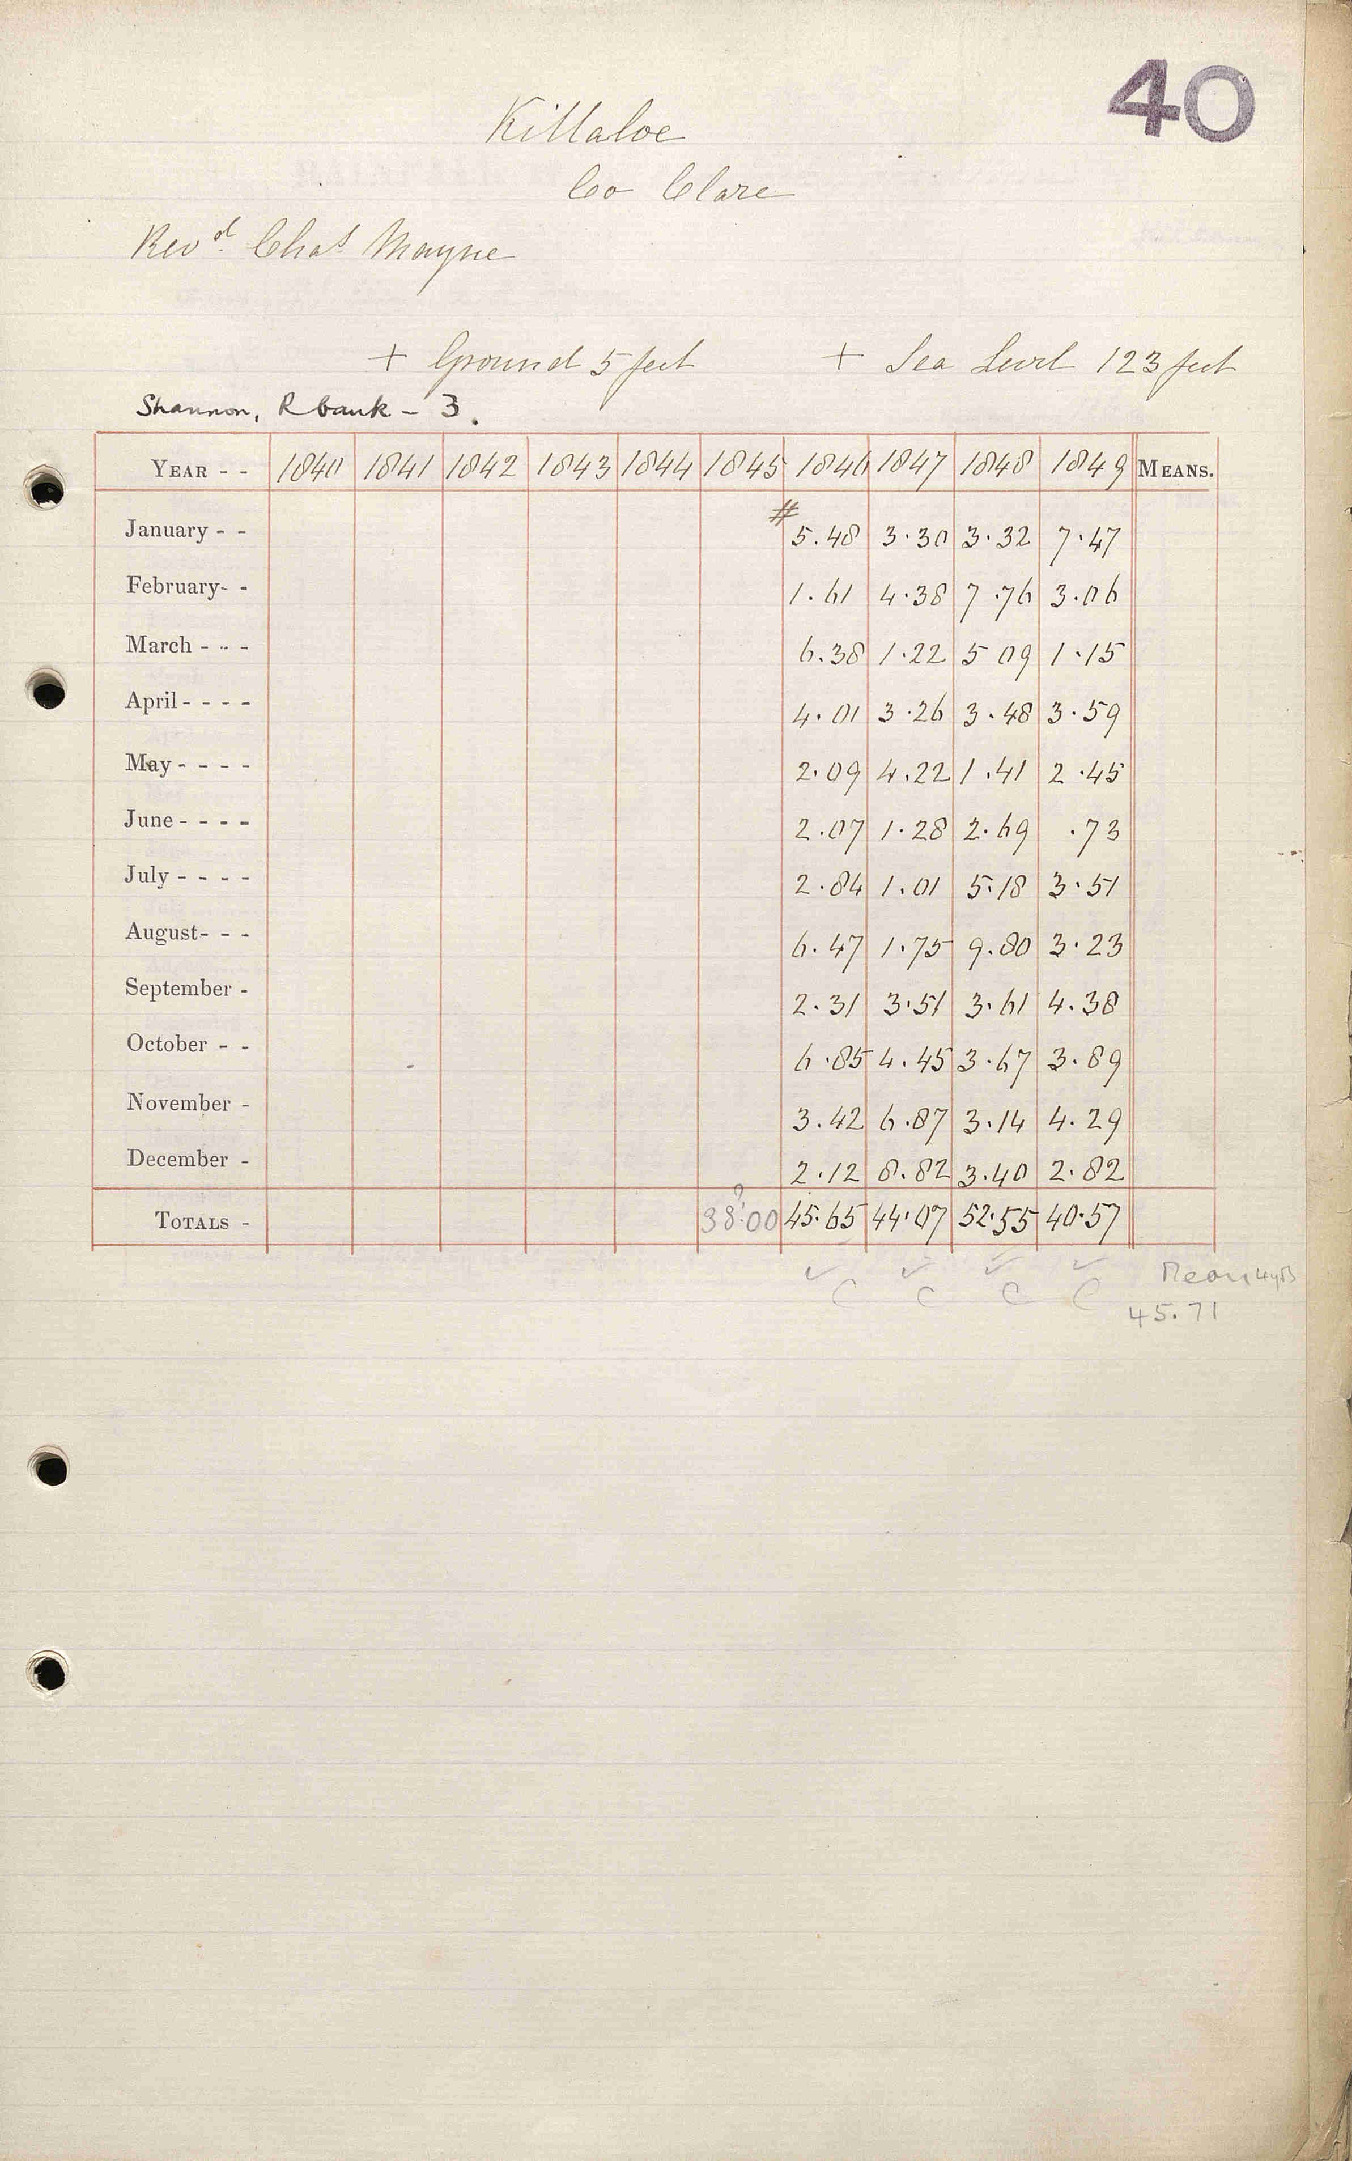 40
Killaloe
Co Clare
Revd. Chas Mayne
+ Ground 5 feet + Sea Level 123 feet
Shannon, R bank - 3.
YEAR - - 1840 1841 1842 1843 1844 1845 1846 1847 1848 1849 MEANS.
#
January - - 5.48 3.30 3.32 7.47
February- - 1.61 4.38 7.76 3.06
March - - - 6.38 1.22 5 09 1.15
April - - - - 4.01 3.26 3.48 3.59
May - - - - 2.09 4.22 1.41 2.45
June - - - - 2.07 1.28 2.69 .73
July - - - - 2.84 1.01 5.18 3.51
August- - - 6.47 1.75 9.80 3.23
September - 2.31 3.51 3.61 4.38
October - - 6.85 4.45 3.67 3.89
November - 3.42 6.87 3.14 4.29
December - 2.12 8.82 3.40 2.82
?
TOTALS - 38.00 45.65 44.07 52.55 40.57
✓ ✓ ✓ ✓ Mean 4 yrs
C C C C 45.71